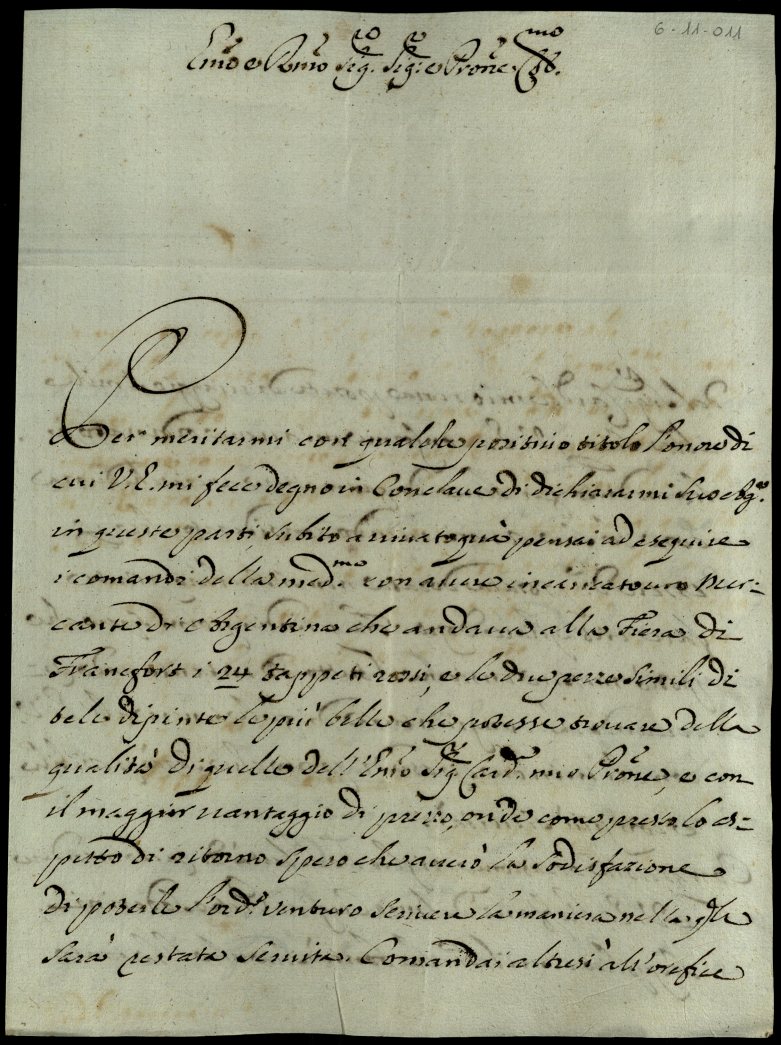 6-11-011
Em̃o e Rm̃o Sig.re Sig.re e Pron̄e Col.mo
Per meritarmi con qualche positiuo titolo l'onore di
cui V. E. mi fece degno in Conclaue di dichiararmi suo
in queste parti, subito arriuato quà pensai ad eseguire
i comandi della med.ma con auere incaricato uro Mer=
cante di Argentina che andaua alla Fiera di
Francfort i 24 tappeti rossi, e le due pezze simili di
tele dipinte le più belle che potesse trouare della
qualità di quelle dell'Em̃o Sig.r Card. mio Pron̄e, e con
il maggior uantaggio di prezzo, onde come presto lo as=
petto di ritorno spero che auerò la sodisfazione
di poterle l'ord.o uenturo scriuere la maniera nella q̃le
sarà restata seruita. Comandai altresì all'orefice